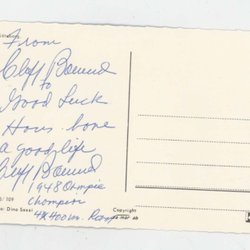 From
Cliff Bourland
to
Good Luck
Hans. have
a good life
Cliff Bourland
1948 Olympic
champion
4x400m. Relay
/ 109
Dino Sassi
Copyright